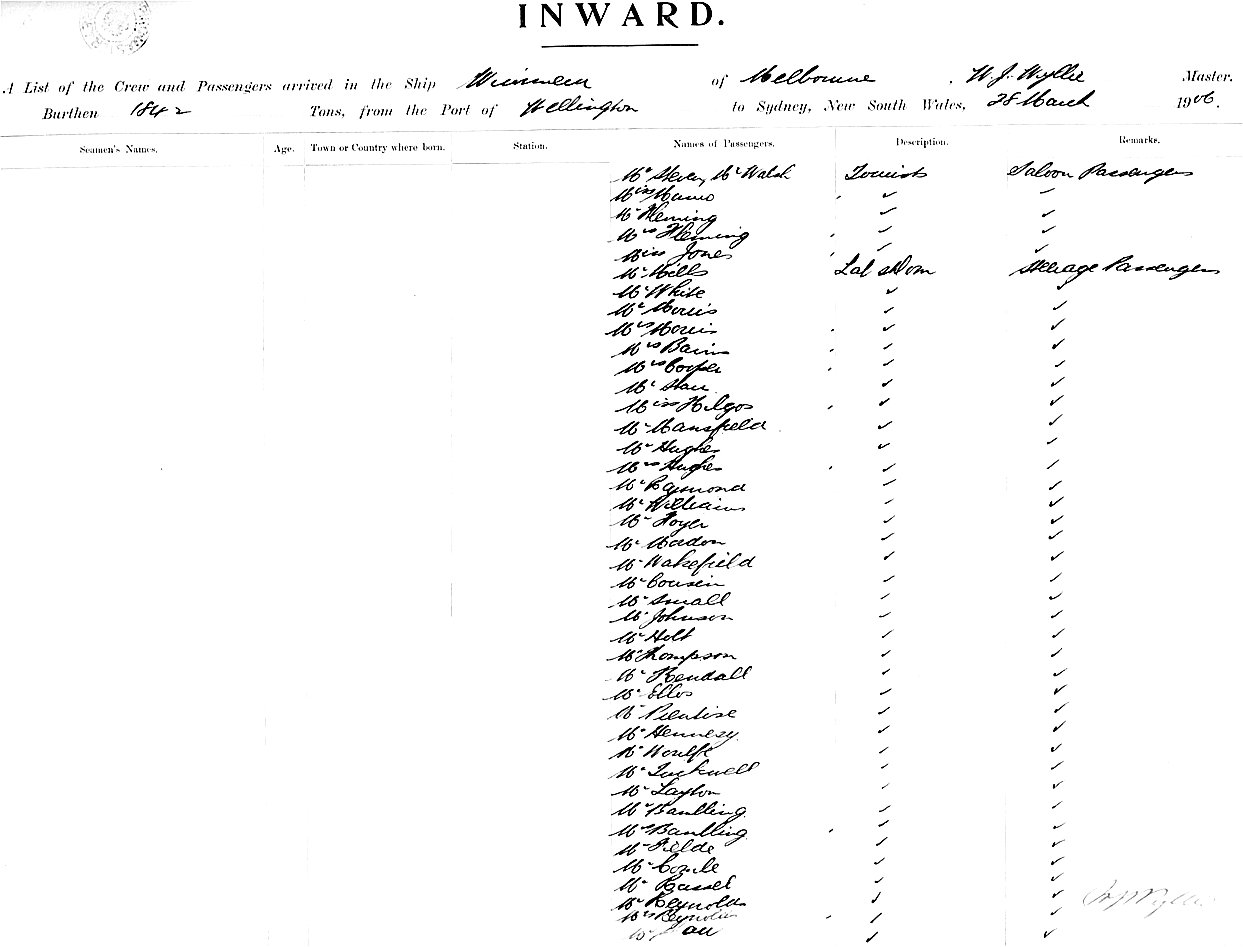 INWARD.
A List of the Crew and Passengers arrived in the Ship Wimmera of Melbourne, W. J. Wyllie Master.
Burthen 1842 Tons, from the Port of Wellington to Sydney, New South Wales, 28 March 1906.
Seamen's Names. Age. Town or Country where born. Station. Names of Passengers. Description. Remarks.
Mr Mr Walsh Tourists Saloon Passengers
Miss
Mr Fleming
Mrs Fleming
Miss Jones
Mr Mills Lab & Dom Steerage Passengers
Mr White
Mr Morris
Mrs Morris
Mrs Bain
Mrs Cooper
Mr
Miss
Mr Mansfield
Mr Hughes
Mrs Hughes
Mr Raymond
Mr Williams
Mr
Mr
Mr Wakefield
Mr Cousin
Mr Small
Mr Johnson
Mr Holt
Mr Thompson
Mr Kendall
Mr Ellos
Mr Prentise
Mr Hennesy
Mr Woulfe
Mr Tucknell
Mr Layton
Mr
Mrs
Mr Fielde
Mr
Mr Bassel
Mr Reynolds
Mrs Reynolds
Mr